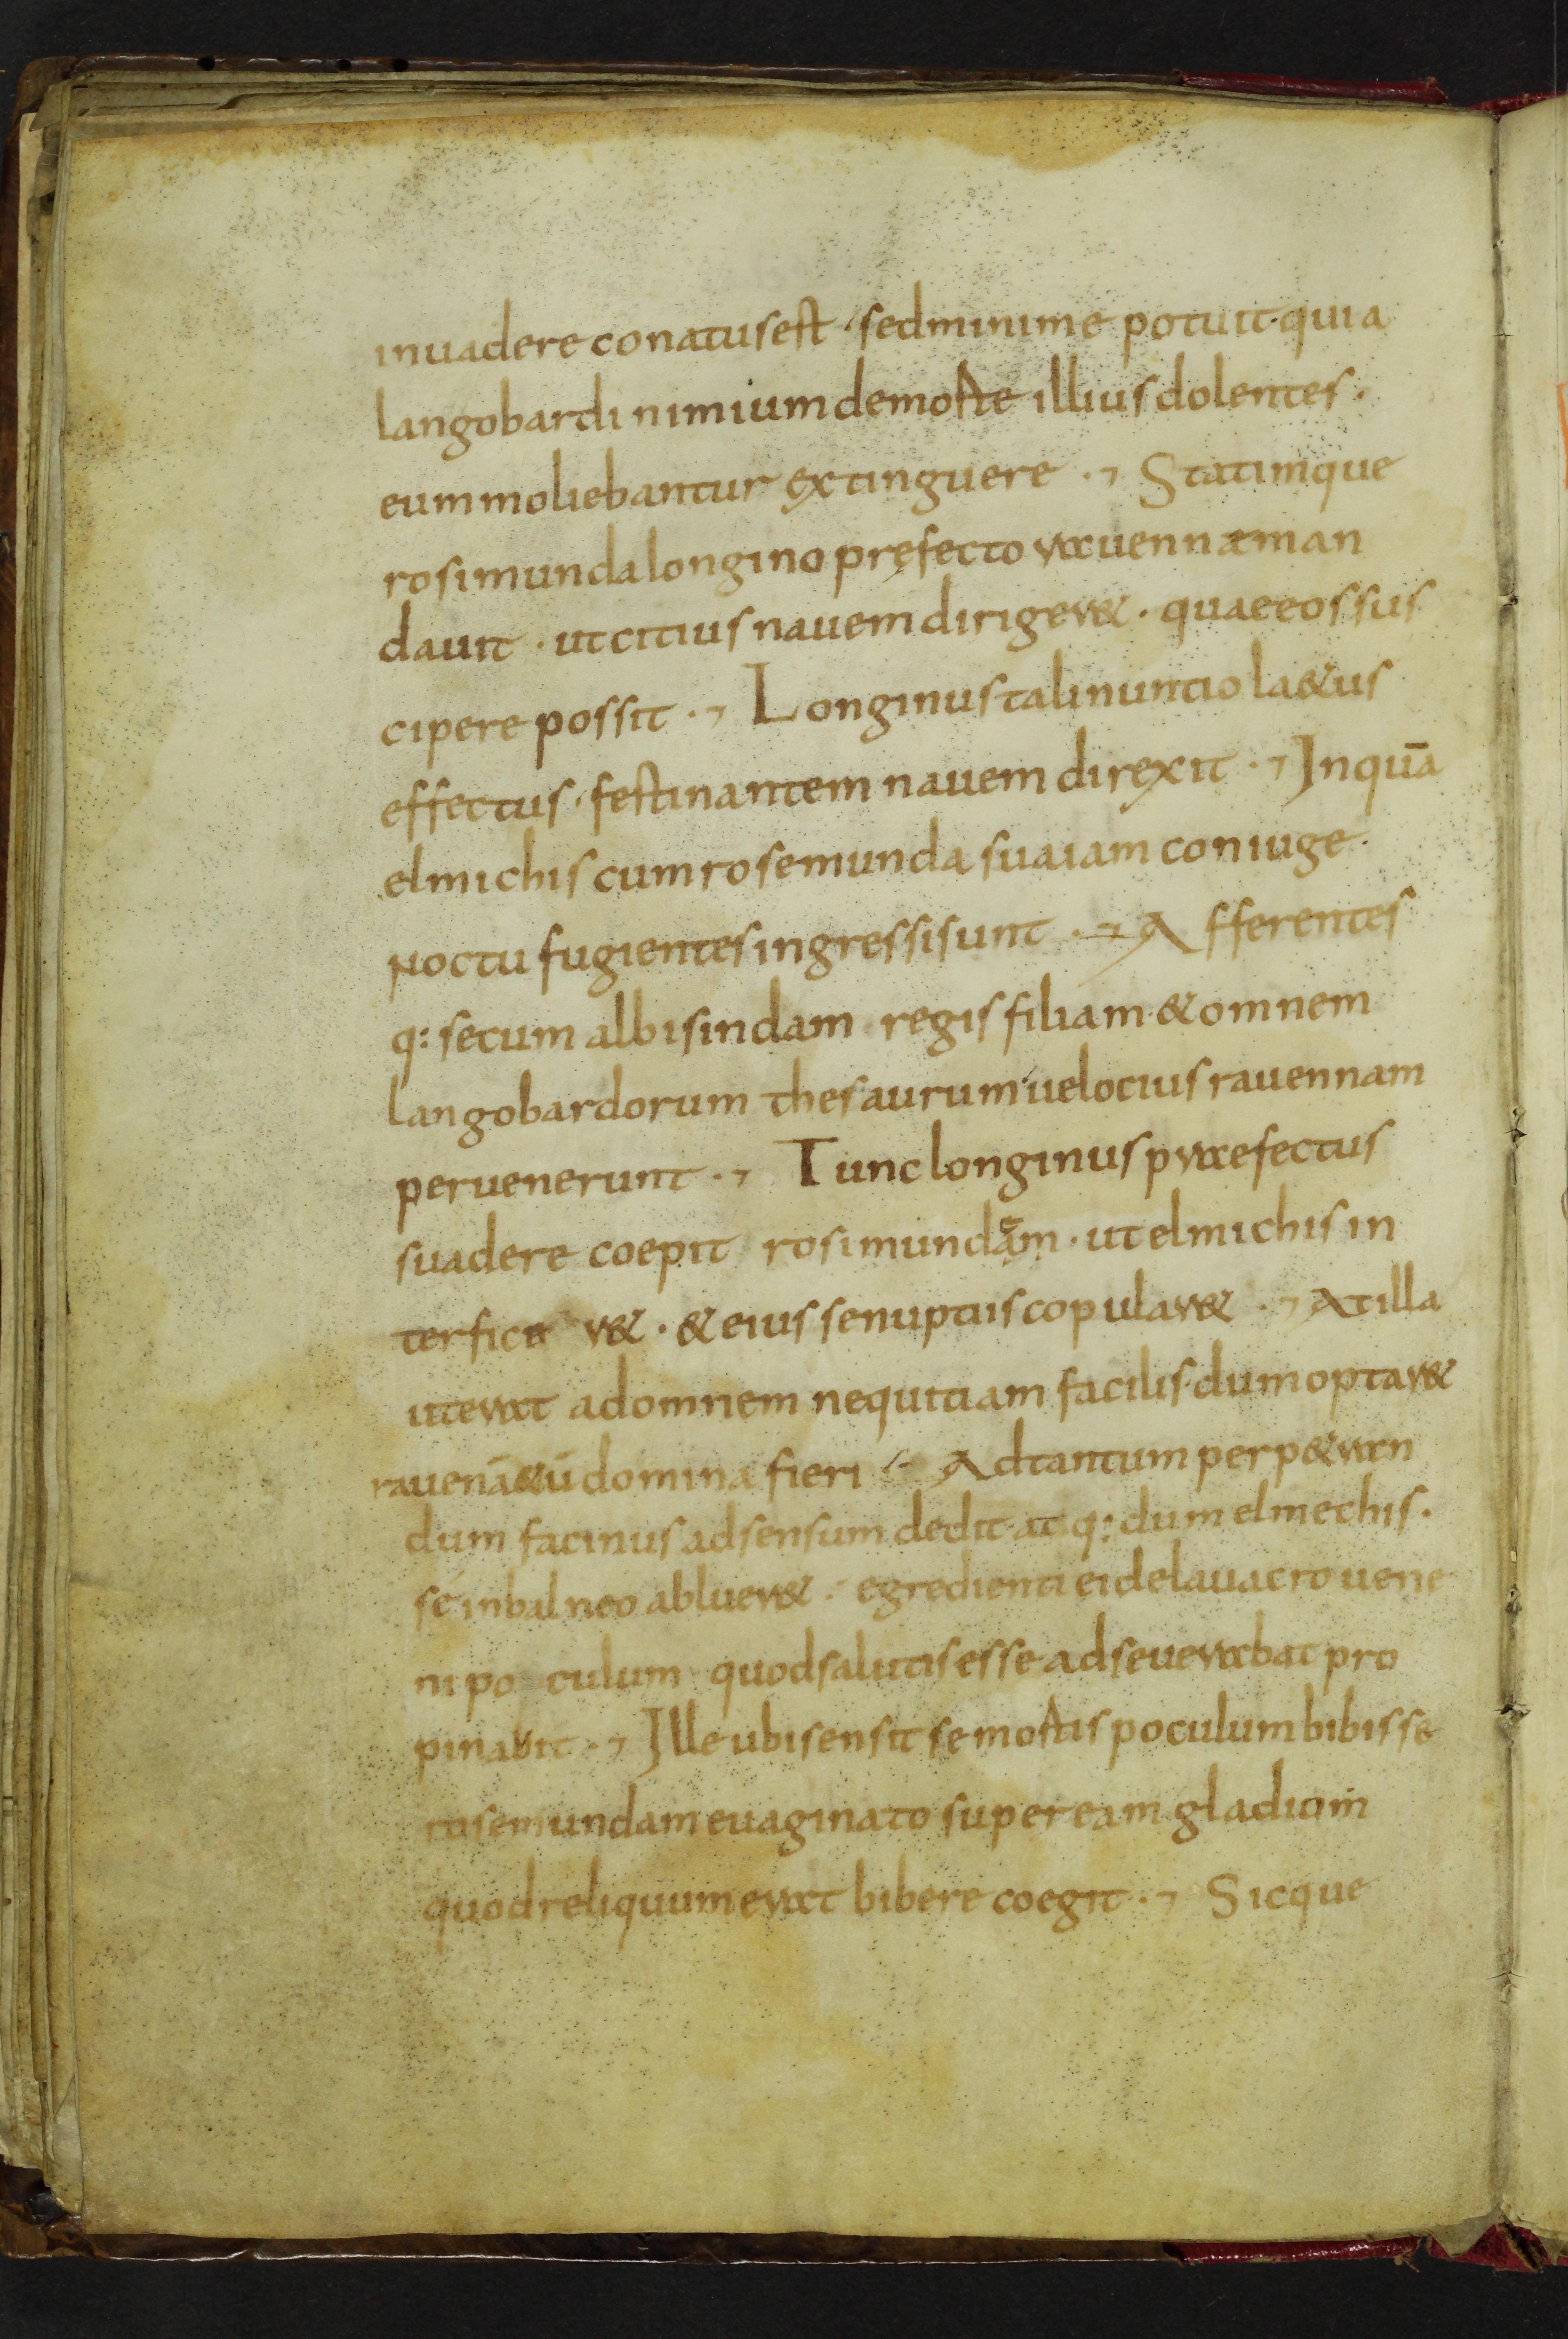 inuadere conatus est · sed minime potuit · quia
langobardi nimium de morte illius dolentes ·
eum moliebantur extinguere · Statimque
rosimunda longino pręfecto rauennae man
dauit · ut citius nauem dirigeret · quae eos sus
cipere possit · Longinus tali nuntio laetus
effectus · festinantem nauem direxit · In quā
elmichis cum rosemunda sua iam coniuge ·
Noctu fugientes ingressi sunt · Afferentes
q: secum albisindam regis filiam & omnem
langobardorum thesaurum uelocius rauennam
peruenerunt · Tunc longinus praefectus
suadere coepit rosimundam · ut elmichis in
terfice ret · & eius se nuptiis copularet · At illa
ut erat ad omnem nequitiam facilis · dum optaret
rauenā&ū domina fieri Ad tantum perpetran
dum facinus adsensum dedit · atq: dum elmechis ·
se in balneo ablueret · egredienti ei de lauacro uene
ni po culum quod salutis esse adseuerabat pro
pinauit · Ille ubi sensit se mortis poculum bibisse
rosemundam euaginato super eam gladiom
quod reliquum erat bibere coegit · Sicque